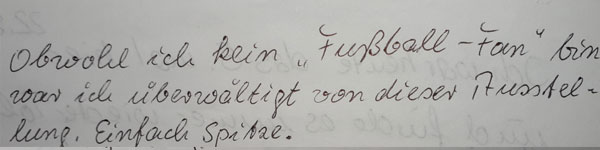 Obwohl ich kein „Fußball-Fan" bin
war ich überwältigt von dieser Ausstel-
lung. Einfach Spitze.